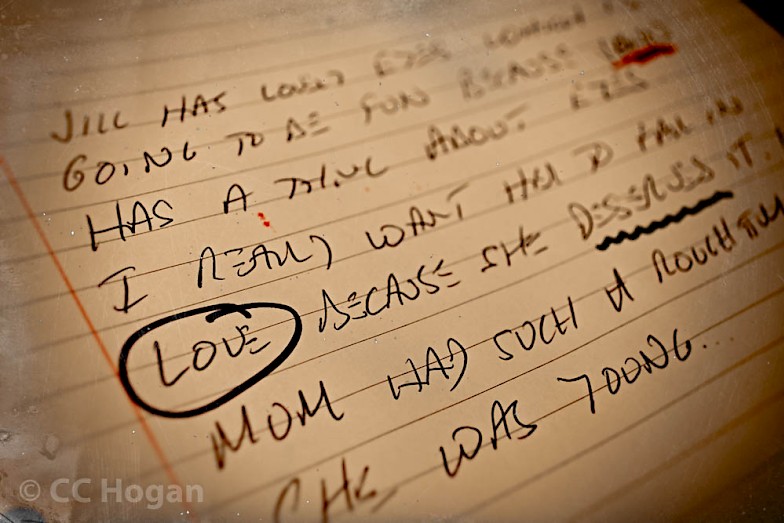 JILL HAS LOVELY EYES
GOING TO BE FUN BECAUSE
HAS A THING ABOUT EYES
I REALLY WANT HER TO FALL IN
LOVE BECAUSE SHE DESERVES IT.
MUM HAD SUCH A ROUGH TIME
SHE WAS YOUNG...
© CC Hogan